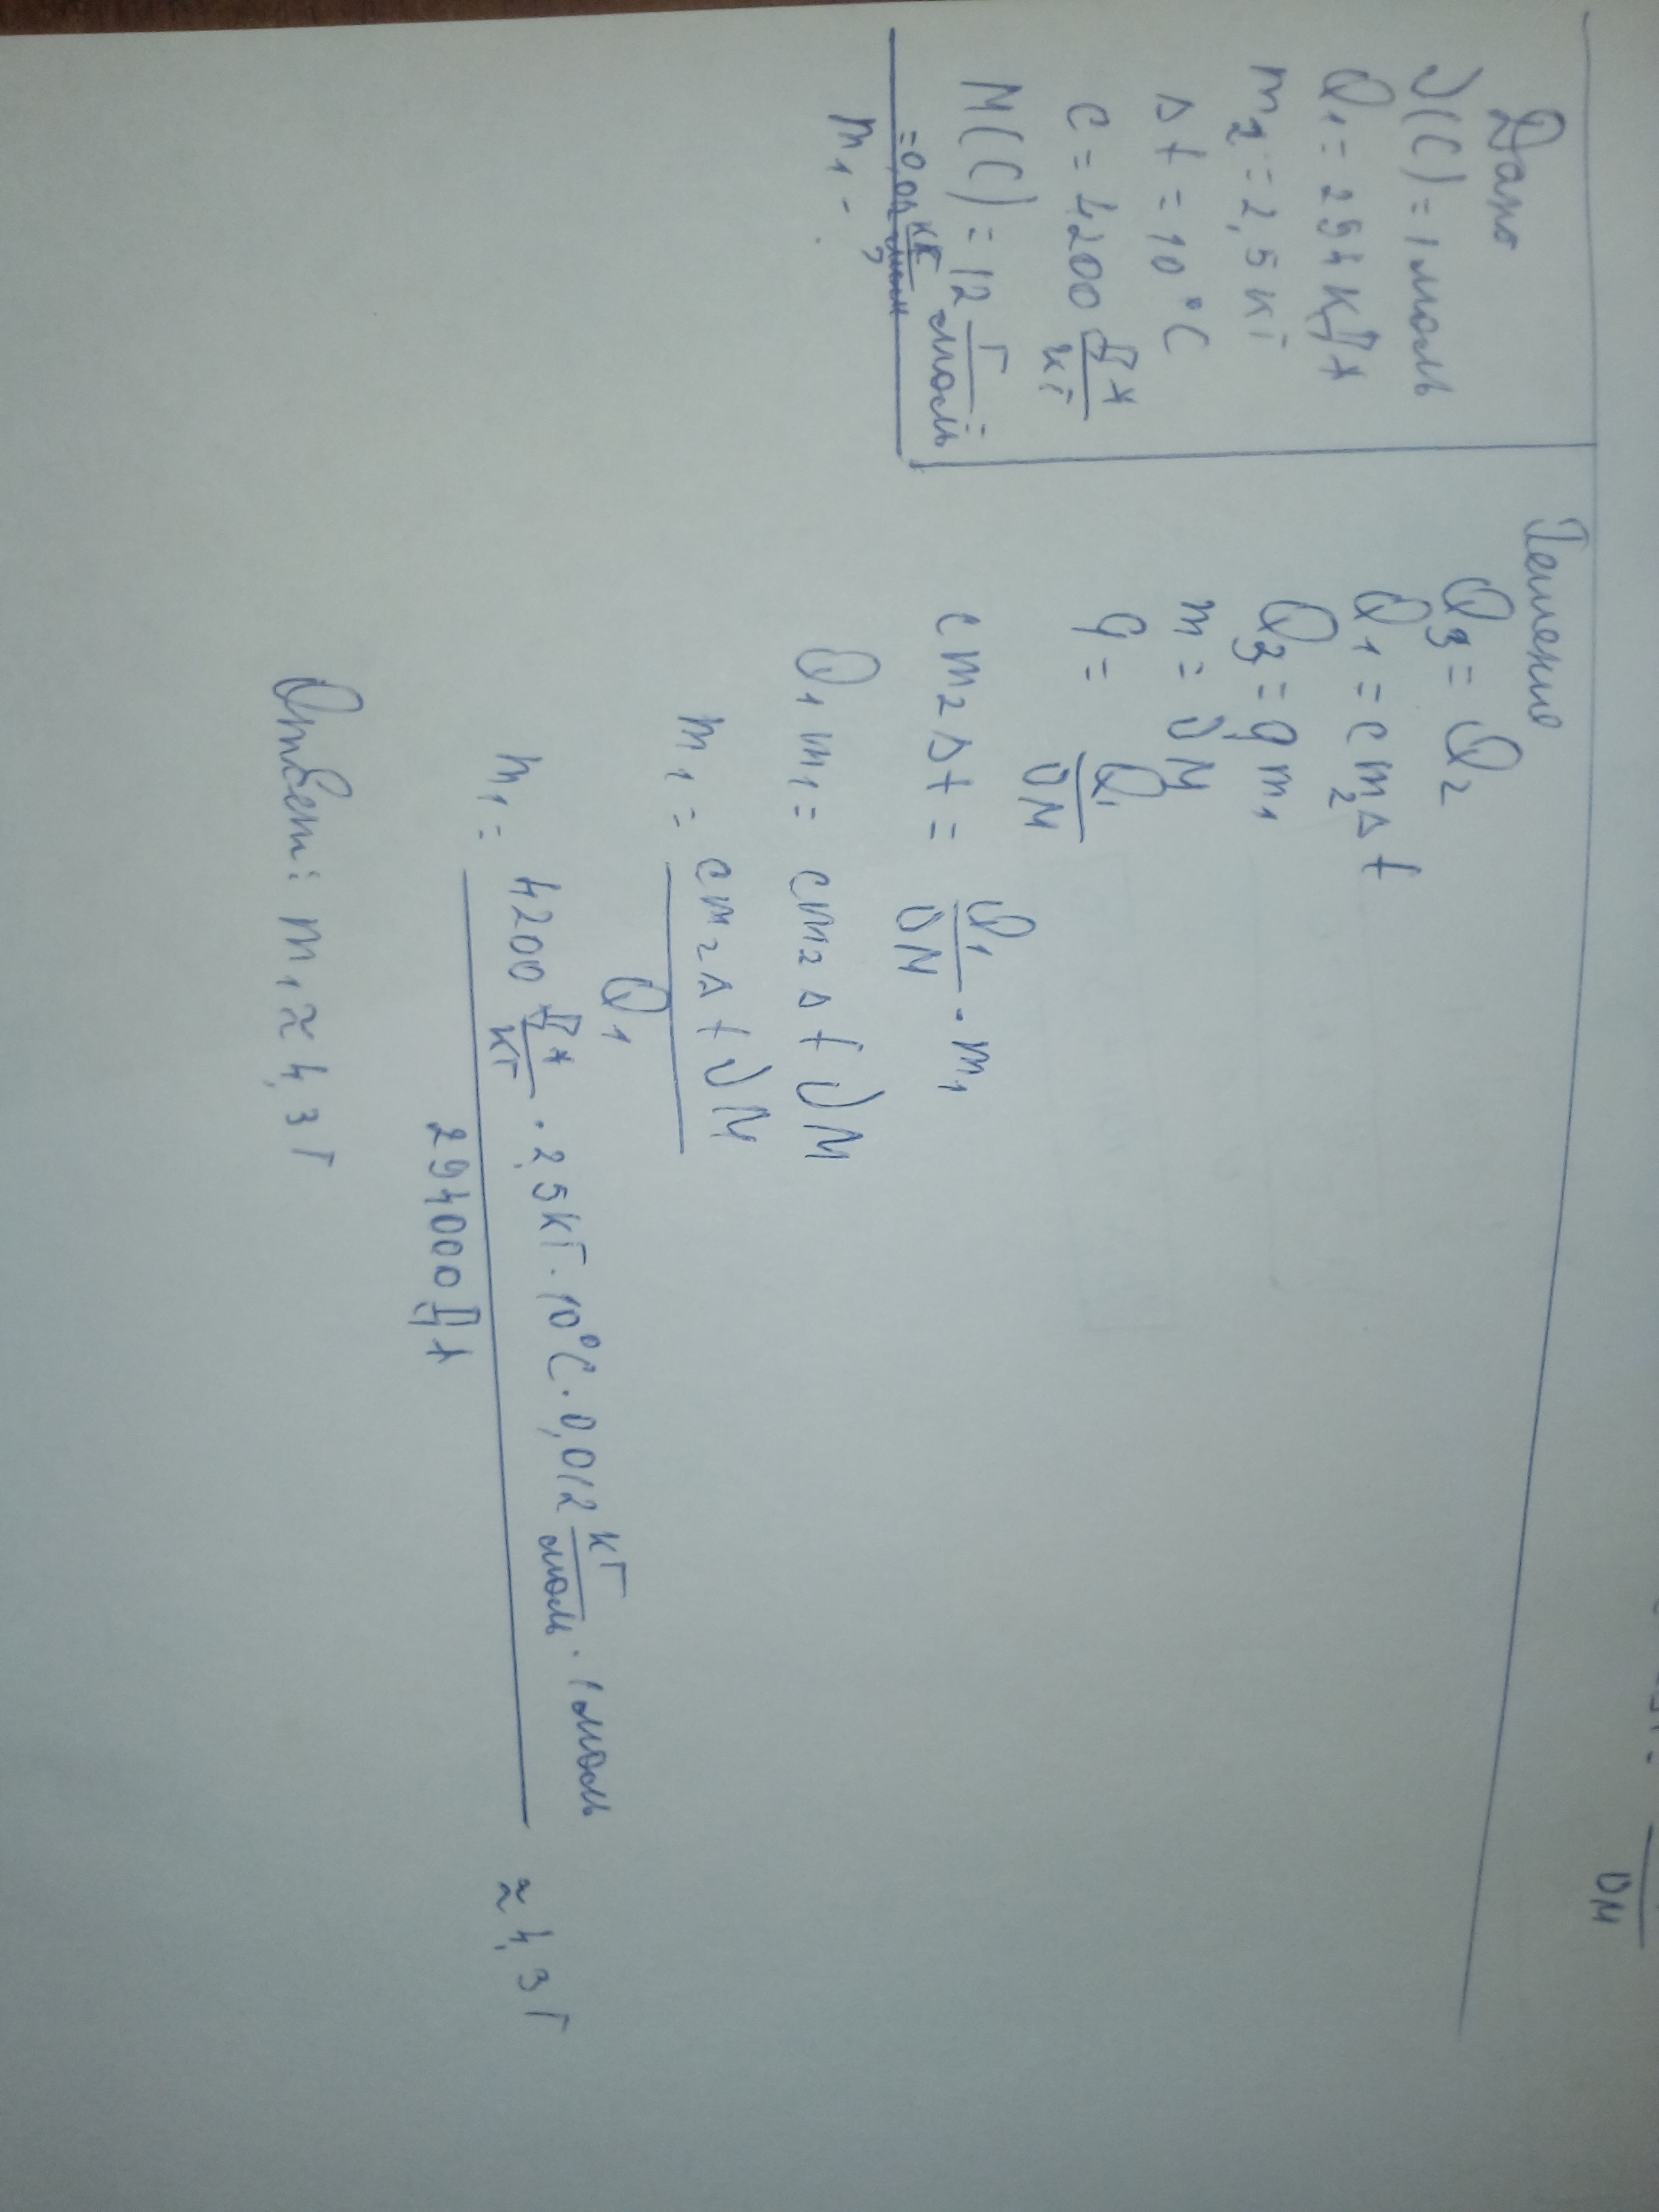 Дано
ν(C) = 1 моль
Q₁ = 294 кДж
m₂ = 2,5 кг
Δt = 10°C
c = 4200 Дж/кг
M(C) = 12 г/моль =
= 0,012 кг/моль
m₁ - ?
Решение
Q₃ = Q₂
Q₁ = c m₂ Δt
Q₃ = q m₁
m = ν M
q = Q₁/νM
c m₂ Δt = Q₁/νM · m₁
Q₁ m₁ = c m₂ Δt ν M
m₁ = c m₂ Δt ν M / Q₁
m₁ = 4200 Дж/кг · 2,5 кг · 10°C · 0,012 кг/моль · 1 моль / 294000 Дж ≈ 4,3 г
Ответ: m₁ ≈ 4,3 г
νM